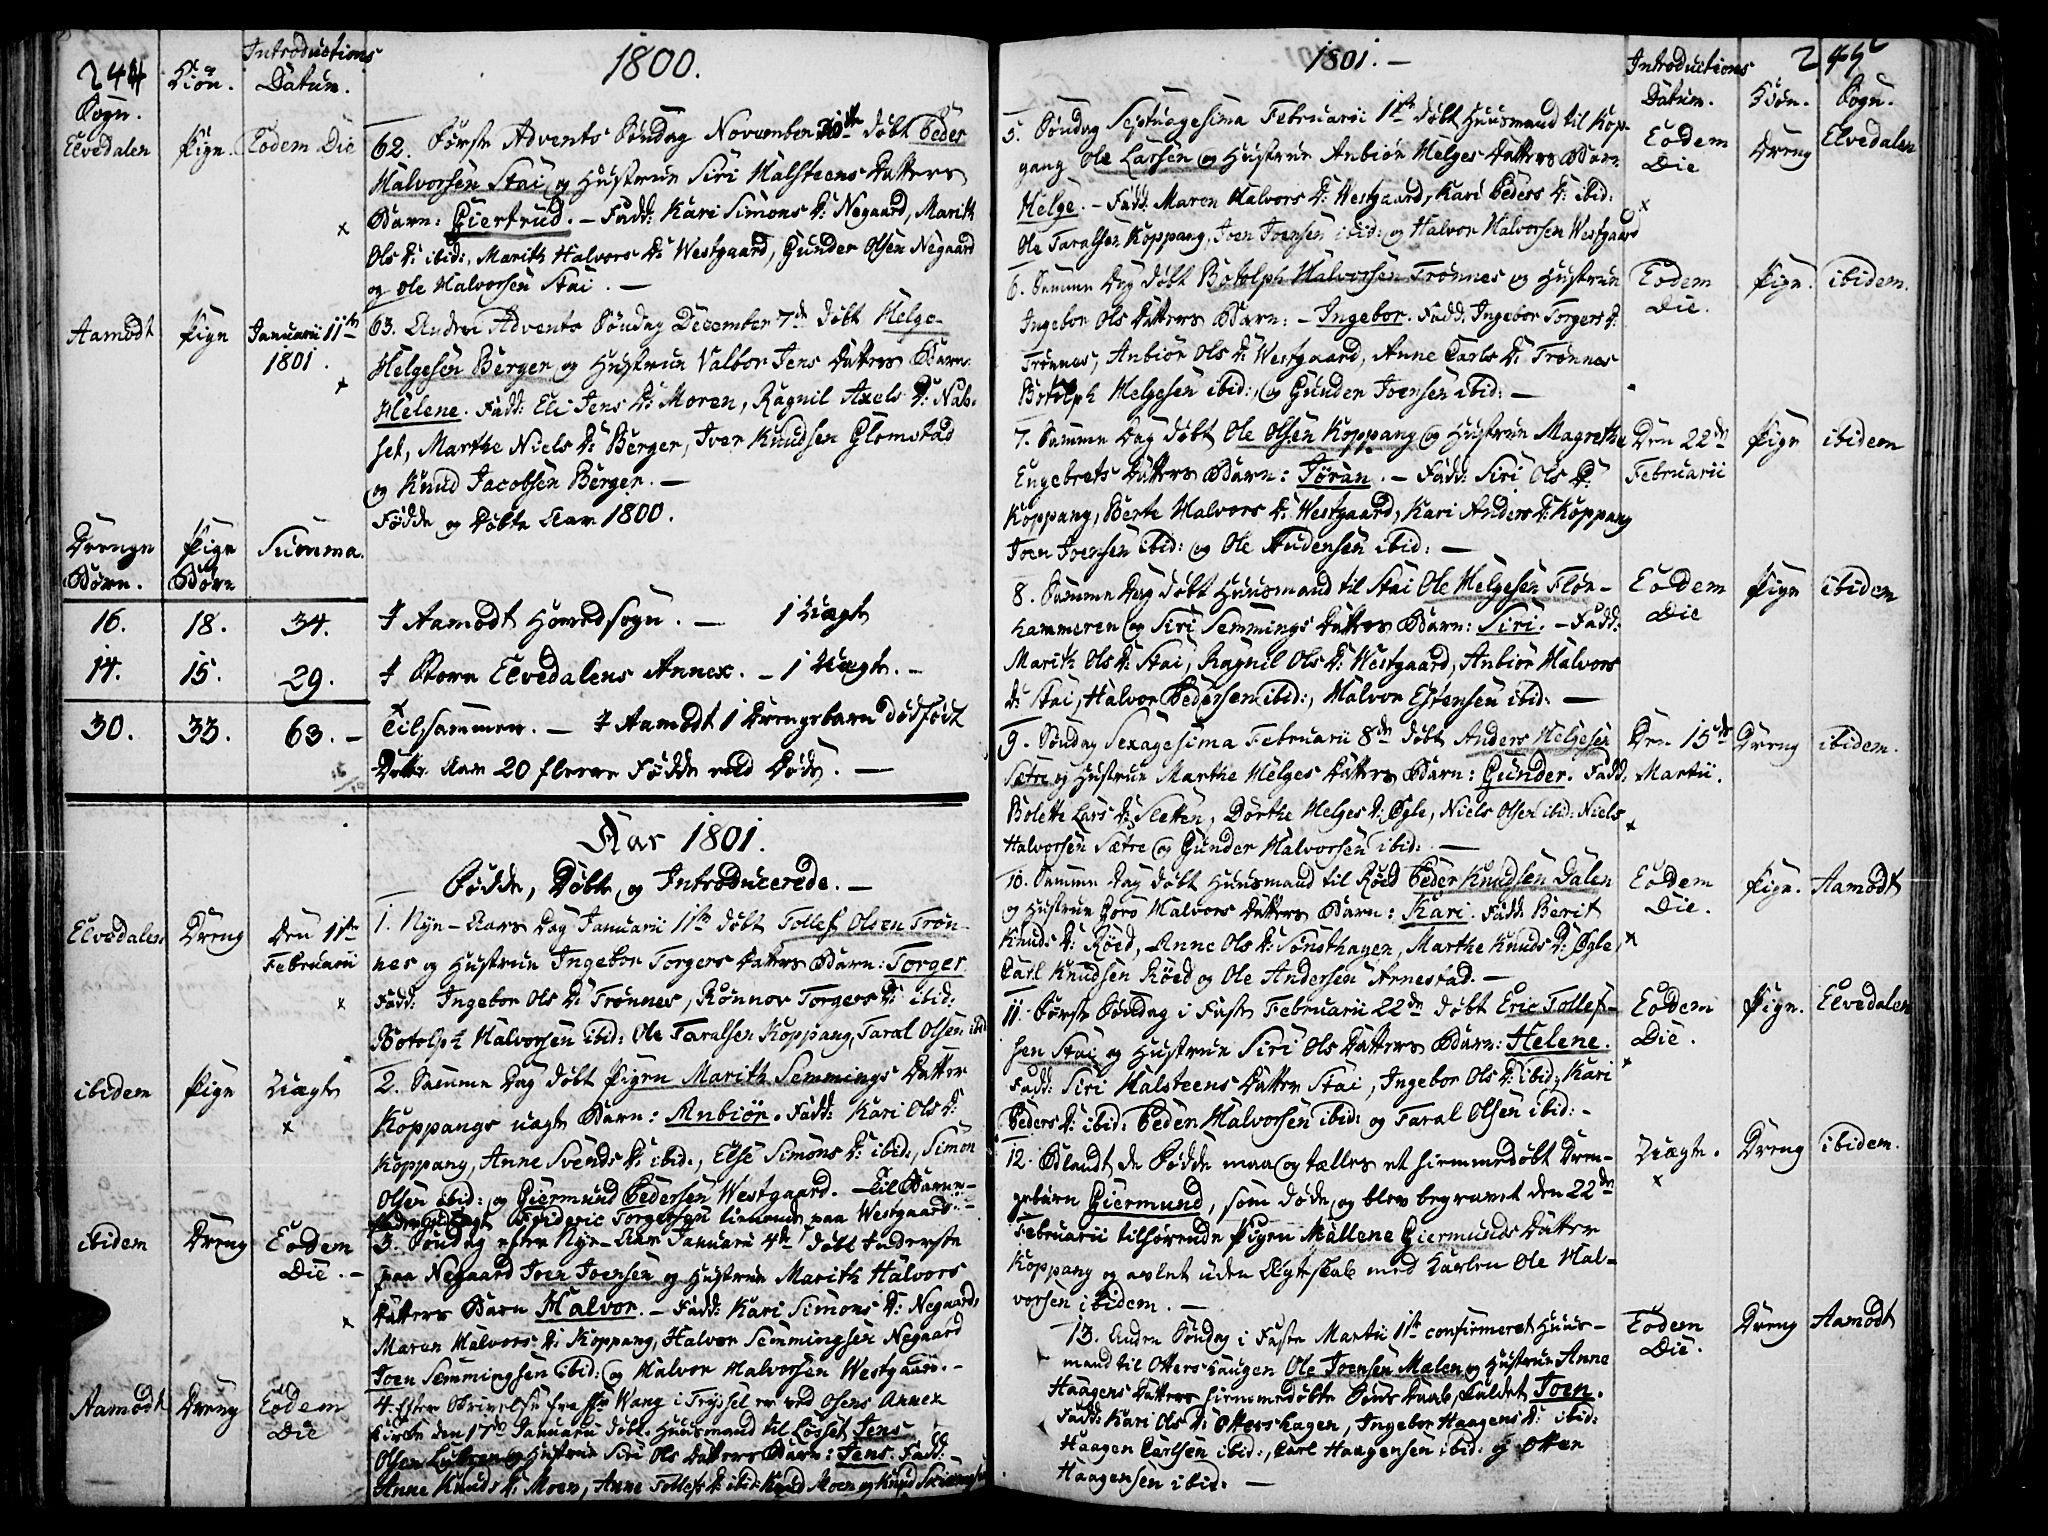 244
Kiön.
Introductions
Datum.
1800.
Sogn.
Elvedalen
Pige.
Eodem Die
62. Første Advents Søndag November 30te døbt Peder
Halvorsen Stai og Hustrue Siri Halsteens Datters
Barn: Giertrud. – Fadd: Kari Simons D: Negaard, Marith
Ols D: ibid:, Marith Halvors D: Westgaard, Gunder Olsen Negaard
og Ole Halvorsen Stai. —
Aamodt
Pige
Januarii 11te
1801.
63. Anden Advents Søndag December 7de døbt Helge
Helgesen Berger og Hustrue Valbor Jens Datters Barn
Helene. Fadd: Eli Jens D: Moren, Ragnil Axels D: Nab-
set, Marthe Niels D: Berger, Iver Knudsen Glomstad
og Knud Jacobsen Berger. —
Fødde og Døbte Aar 1800.
Drenge
Børn.
Pige
Børn
Summa.
16. 18. 34. I Aamodt Hovedsogn. — 1 Uægte
14. 15. 29. I Store Elvedalens Annex. – 1 Uægte. –
30. 33. 63. – Tilsammen. – I Aamodt 1 Drengebarn dødfødt
Dette Aar 20 flere Fødde end Døde. —
Aar 1801.
Fødde, Døbte og Introducerede. —
Elvedalen
Dreng
Den 1ste
Februarii
1. Nye-Aars Dag Januarii 1ste døbt Tollef Olsen Trøn-
nes og Hustrue Ingebor Torgers Datters Barn: Torger
Fadd: Ingebor Ols D: Trønnes, Rønnov Torgers D: ibid:
Botolph Halvorsen ibid: Ole Taralsen Koppang, Taral Olsen ibid
ibidem
Pige
Uægte
2. Samme Dag døbt Pigen Marith Semmings Datter
Koppangs uægte Barn: Anbiør. Fadd: Kari Ols D:
Koppang, Anne Svends D: ibid:, Else Simons D: ibid:, Simon
Olsen ibid: og Giermund Pedersen Westgaard. – Til Barne-
fader udlagt Frideric Torgersen tienende paa Westgaard. –
ibidem
Dreng
Eodem
Die. –
3. Søndag efter Nye-Aar Januarii 4de døbt Inderste
paa Negaard Joen Joensen og Hustrue Marith Halvors
Datters Barn Halvor. – Fadd: Kari Simons D: Negaard,
Maren Halvors D: Koppang, Halvor Semmingsen Negaard
Joen Semmingsen ibid: og Halvor Halvorsen Westgaard. –
Aamodt
Dreng
Eodem
Die
4. Efter Skrivelse fra Hr Wang i Tryssel er ved Osens Annex
Kirke den 17de Januarii døbt Huusmand til Losset Jens
Olsen og Hustrue Siri Ols Datters Barn: Jens. Fadd:
Anne Knuds D: Moen, Anne Tollefs D: ibid: Knud Moen og Knud
1801. –
Introductions
Datum.
Kiön.
245
Sogn.
5. Søndag Septuagesima Februarii 1ste døbt Huusmand til Kop-
gang Ole Larsen og Hustrue Anbiør Helges Datters Barn
Helge. – Fadd: Maren Halvors D: Westgaard, Kari Peders D: ibid:
Ole Taralsen Koppang, Joen Joensen ibid: og Halvor Halvorsen Westgaard
Eodem
Die
Dreng
Elvedalen
6. Samme Dag døbt Botolph Halvorsen Trønnes og Hustrue
Ingebor Ols Datters Barn: – Ingebor. Fadd: Ingebor Torgers D:
Trønnes, Anbiør Ols D: Westgaard, Anne Carls D: Trønnes
Botolph Helgesen ibid:, og Gunder Joensen ibid: —
Eodem
Die.
Pige.
ibidem.
7. Samme Dag døbt Ole Olsen Koppang og Hustrue Magrethe
Engebrets Datters Barn: Jøran. – Fadd: Siri Ols D:
Koppang, Berte Halvors D: Westgaard, Kari Anders D: Koppang
Joen Joensen ibid: og Ole Audensen ibid: —
Den 22de
Februarii
Pige
ibidem
8. Samme Dag døbt Huusmand til Stai Ole Helgesen Flön-
kammeren og Siri Semmings Datters Barn: Siri. – Fadd:
Marith Ols D: Stai, Ragnil Ols D: Westgaard, Anbiør Halvors
D: Stai, Halvor Pedersen ibid:, Halvor Estensen ibid: —
Eodem
Die
Pige
ibidem
9. Søndag Sexagesima Februarii 8de døbt Anders Helgesen
Sætre og Hustrue Marthe Helges Datters Barn: Gunder. Fadd:
Bolette Lars D: Sletten, Dorthe Helges D: Øgle, Niels Olsen ibid: Niels
Halvorsen Sætre og Gunder Halvorsen ibid: —
Den 15de
Martii.
Dreng
ibidem.
10. Samme Dag døbt Huusmand til Røed Peder Knudsen Dalen
og Hustrue Goro Halvors Datters Barn: Kari. Fadd: Berit
Knuds D: Røed, Anne Ols D: Sønsthagen, Marthe Knuds D: Øgle,
Carl Knudsen Røed og Ole Andersen Arnestad. —
Eodem
Die.
Pige.
Aamodt
11. Første Søndag i Faste Februarii 22de døbt Eric Tollef-
sen Stai og Hustrue Siri Ols Datters Barn: Helene.
Fadd: Siri Halsteens Datter Stai, Ingebor Ols D: ibid: Kari
Peders D: ibid: Peder Halvorsen ibid: og Taral Olsen ibid: –
Eodem
Die.
Pige.
Elvedalen
12. Iblandt de Fødde maa og tælles et hiemmedøbt Dren-
gebarn Giermund, som døde og blev begravet den 22de
Februarii tilhørende Pigen Mallene Giermunds Datter
Koppang og avlet uden Ægteskab med Karlen Ole Hal-
vorsen ibidem. —
Uægte.
Dreng
ibidem.
13. Anden Søndag i Faste Martii 1ste confirmeret Huus-
mand til Otters Haugen Ole Joensen Mælen og Hustrue Anne
Haagens Datters hiemmedøbte Søns Daab, kaldet Joen.
Fadd: Kari Ols D: Ottershagen, Ingebor Haagens D: ibid:
Haagen Carlsen ibid:, Carl Haagensen ibid: og Otter
Haagensen ibid: —
Eodem
Die.
Dreng
Aamodt